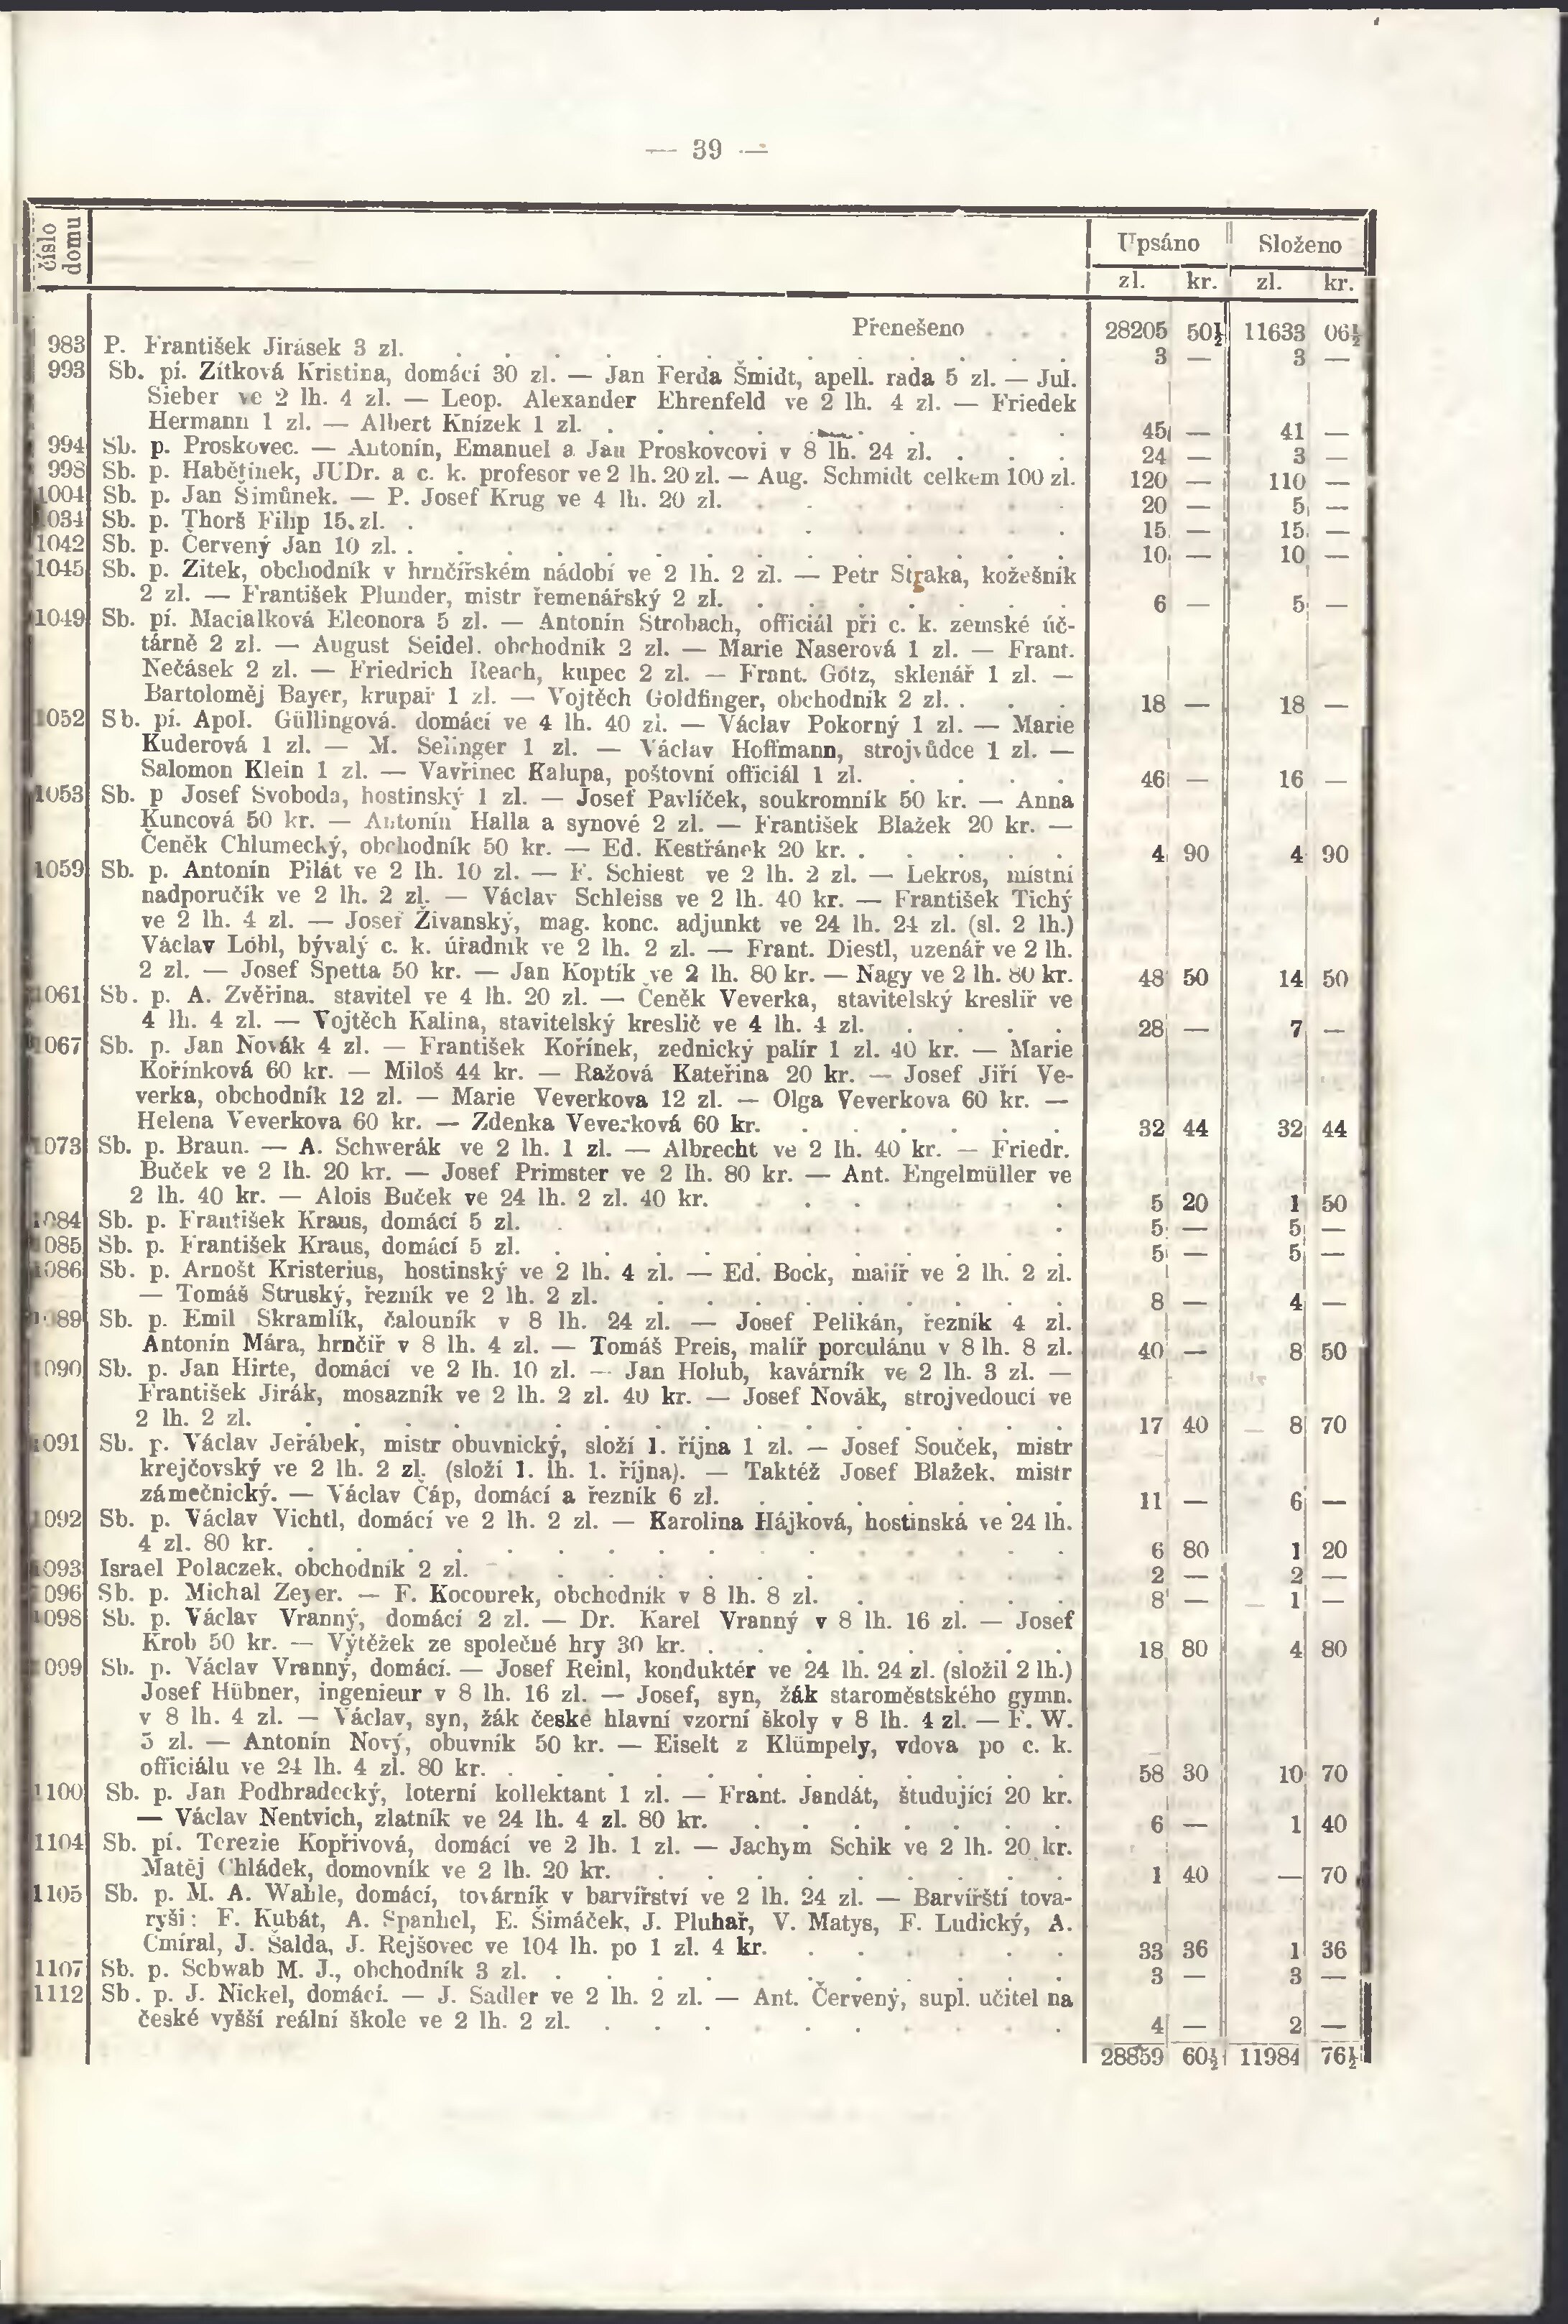 — 39 —
číslo domu
Upsáno Složeno
zl. kr. zl. kr.
Přenešeno . . . 28205 50½ 11633 06½
983 P. František Jirásek 3 zl. 3 — 3 —
993 Sb. pí. Zítková Kristina, domácí 30 zl. — Jan Ferda Šmidt, apell. rada 5 zl. — Jul.
Sieber ve 2 lh. 4 zl. — Leop. Alexander Ehrenfeld ve 2 lh. 4 zl. — Friedek
Hermann 1 zl. — Albert Knízek 1 zl. 45 — 41 —
994 Sb. p. Proskovec. — Antonín, Emanuel a Jan Proskovcovi v 8 lh. 24 zl. 24 — 3 —
998 Sb. p. Habětínek, JUDr. a c. k. profesor ve 2 lh. 20 zl. — Aug. Schmidt celkem 100 zl. 120 — 110 —
1004 Sb. p. Jan Šimůnek. — P. Josef Krug ve 4 lh. 20 zl. 20 — 5 —
1034 Sb. p. Thorš Filip 15 zl. 15 — 15 —
1042 Sb. p. Červený Jan 10 zl. 10 — 10 —
1045 Sb. p. Zitek, obchodník v hrnčířském nádobí ve 2 lh. 2 zl. — Petr Straka, kožešník
2 zl. — František Plunder, mistr řemenářský 2 zl. 6 — 5 —
1049 Sb. pí. Macialková Eleonora 5 zl. — Antonín Strobach, officiál při c. k. zemské úč-
tárně 2 zl. — August Seidel, obchodník 2 zl. — Marie Naserová 1 zl. — Frant.
Nečásek 2 zl. — Friedrich Reach, kupec 2 zl. — Frant. Götz, sklenář 1 zl. —
Bartoloměj Bayer, krupař 1 zl. — Vojtěch Goldfinger, obchodník 2 zl. 18 — 18 —
1052 Sb. pí. Apol. Güllingová, domácí ve 4 lh. 40 zl. — Václav Pokorný 1 zl. — Marie
Kuderová 1 zl. — M. Selinger 1 zl. — Václav Hoffmann, strojvůdce 1 zl. —
Salomon Klein 1 zl. — Vavřinec Kalupa, poštovní officiál 1 zl. 46 — 16 —
1053 Sb. p Josef Svoboda, hostinský 1 zl. — Josef Pavlíček, soukromník 50 kr. — Anna
Kuncová 50 kr. — Antonín Halla a synové 2 zl. — František Blažek 20 kr. —
Čeněk Chlumecký, obchodník 50 kr. — Ed. Kestřánek 20 kr. 4 90 4 90
1059 Sb. p. Antonín Pilát ve 2 lh. 10 zl. — F. Schiest ve 2 lh. 2 zl. — Lekros, místní
nadporučík ve 2 lh. 2 zl. — Václav Schleiss ve 2 lh. 40 kr. — František Tichý
ve 2 lh. 4 zl. — Josef Živanský, mag. konc. adjunkt ve 24 lh. 24 zl. (sl. 2 lh.)
Václav Löbl, bývalý c. k. úřadník ve 2 lh. 2 zl. — Frant. Diestl, uzenář ve 2 lh.
2 zl. — Josef Spetta 50 kr. — Jan Koptík ve 2 lh. 80 kr. — Nagy ve 2 lh. 80 kr. 48 50 14 50
1061 Sb. p. A. Zvěřina, stavitel ve 4 lh. 20 zl. — Čeněk Veverka, stavitelský kreslíř ve
4 lh. 4 zl. — Vojtěch Kalina, stavitelský kreslič ve 4 lh. 4 zl. 28 — 7 —
1067 Sb. p. Jan Novák 4 zl. — František Kořínek, zednický palír 1 zl. 40 kr. — Marie
Kořínková 60 kr. — Miloš 44 kr. — Ražová Kateřina 20 kr. — Josef Jiří Ve-
verka, obchodník 12 zl. — Marie Veverkova 12 zl. — Olga Veverkova 60 kr. —
Helena Veverkova 60 kr. — Zdenka Veverková 60 kr. 32 44 32 44
1073 Sb. p. Braun. — A. Schwerák ve 2 lh. 1 zl. — Albrecht ve 2 lh. 40 kr. — Friedr.
Buček ve 2 lh. 20 kr. — Josef Primster ve 2 lh. 80 kr. — Ant. Engelmüller ve
2 lh. 40 kr. — Alois Buček ve 24 lh. 2 zl. 40 kr. 5 20 1 50
1084 Sb. p. František Kraus, domácí 5 zl. 5 — 5 —
1085 Sb. p. František Kraus, domácí 5 zl. 5 — 5 —
1086 Sb. p. Arnošt Kristerius, hostinský ve 2 lh. 4 zl. — Ed. Bock, malíř ve 2 lh. 2 zl.
— Tomáš Struský, řezník ve 2 lh. 2 zl. 8 — 4 —
1089 Sb. p. Emil Skramlík, čalouník v 8 lh. 24 zl. — Josef Pelikán, řezník 4 zl.
Antonín Mára, hrnčíř v 8 lh. 4 zl. — Tomáš Preis, malíř porculánu v 8 lh. 8 zl. 40 — 8 50
1090 Sb. p. Jan Hirte, domácí ve 2 lh. 10 zl. — Jan Holub, kavárník ve 2 lh. 3 zl. —
František Jirák, mosazník ve 2 lh. 2 zl. 40 kr. — Josef Novák, strojvedoucí ve
2 lh. 2 zl. 17 40 8 70
1091 Sb. p. Václav Jeřábek, mistr obuvnický, složí 1. října 1 zl. — Josef Souček, mistr
krejčovský ve 2 lh. 2 zl. (složí 1. lh. 1. října). — Taktéž Josef Blažek, mistr
zámečnický. — Václav Čáp, domácí a řezník 6 zl. 11 — 6 —
1092 Sb. p. Václav Vichtl, domácí ve 2 lh. 2 zl. — Karolina Hájková, hostinská ve 24 lh.
4 zl. 80 kr. 6 80 1 20
1093 Israel Polaczek, obchodník 2 zl. 2 — 2 —
1096 Sb. p. Michal Zeyer. — F. Kocourek, obchodník v 8 lh. 8 zl. 8 — 1 —
1098 Sb. p. Václav Vranný, domácí 2 zl. — Dr. Karel Vranný v 8 lh. 16 zl. — Josef
Krob 50 kr. — Výtěžek ze společné hry 30 kr. 18 80 4 80
1099 Sb. p. Václav Vranný, domácí. — Josef Reinl, konduktér ve 24 lh. 24 zl. (složil 2 lh.)
Josef Hübner, ingenieur v 8 lh. 16 zl. — Josef, syn, žák staroměstského gymn.
v 8 lh. 4 zl. — Václav, syn, žák české hlavní vzorní školy v 8 lh. 4 zl. — F. W.
5 zl. — Antonín Nový, obuvník 50 kr. — Eiselt z Klümpely, vdova po c. k.
officiálu ve 24 lh. 4 zl. 80 kr. 58 30 10 70
1100 Sb. p. Jan Podhradecký, loterní kollektant 1 zl. — Frant. Jandát, študující 20 kr.
— Václav Nentvich, zlatník ve 24 lh. 4 zl. 80 kr. 6 — 1 40
1104 Sb. pí. Terezie Kopřivová, domácí ve 2 lh. 1 zl. — Jachym Schik ve 2 lh. 20 kr.
Matěj Chládek, domovník ve 2 lh. 20 kr. 1 40 — 70
1105 Sb. p. M. A. Wahle, domácí, továrník v barvířství ve 2 lh. 24 zl. — Barvířští tova-
ryši: F. Kubát, A. Spanhel, E. Šimáček, J. Pluhař, V. Matys, F. Ludický, A.
Cmíral, J. Salda, J. Rejšovec ve 104 lh. po 1 zl. 4 kr. 33 36 1 36
1107 Sb. p. Schwab M. J., obchodník 3 zl. 3 — 3 —
1112 Sb. p. J. Nickel, domácí. — J. Sadler ve 2 lh. 2 zl. — Ant. Červený, supl. učitel na
české vyšší reální škole ve 2 lh. 2 zl. 4 — 2 —
28859 60½ 11984 76½